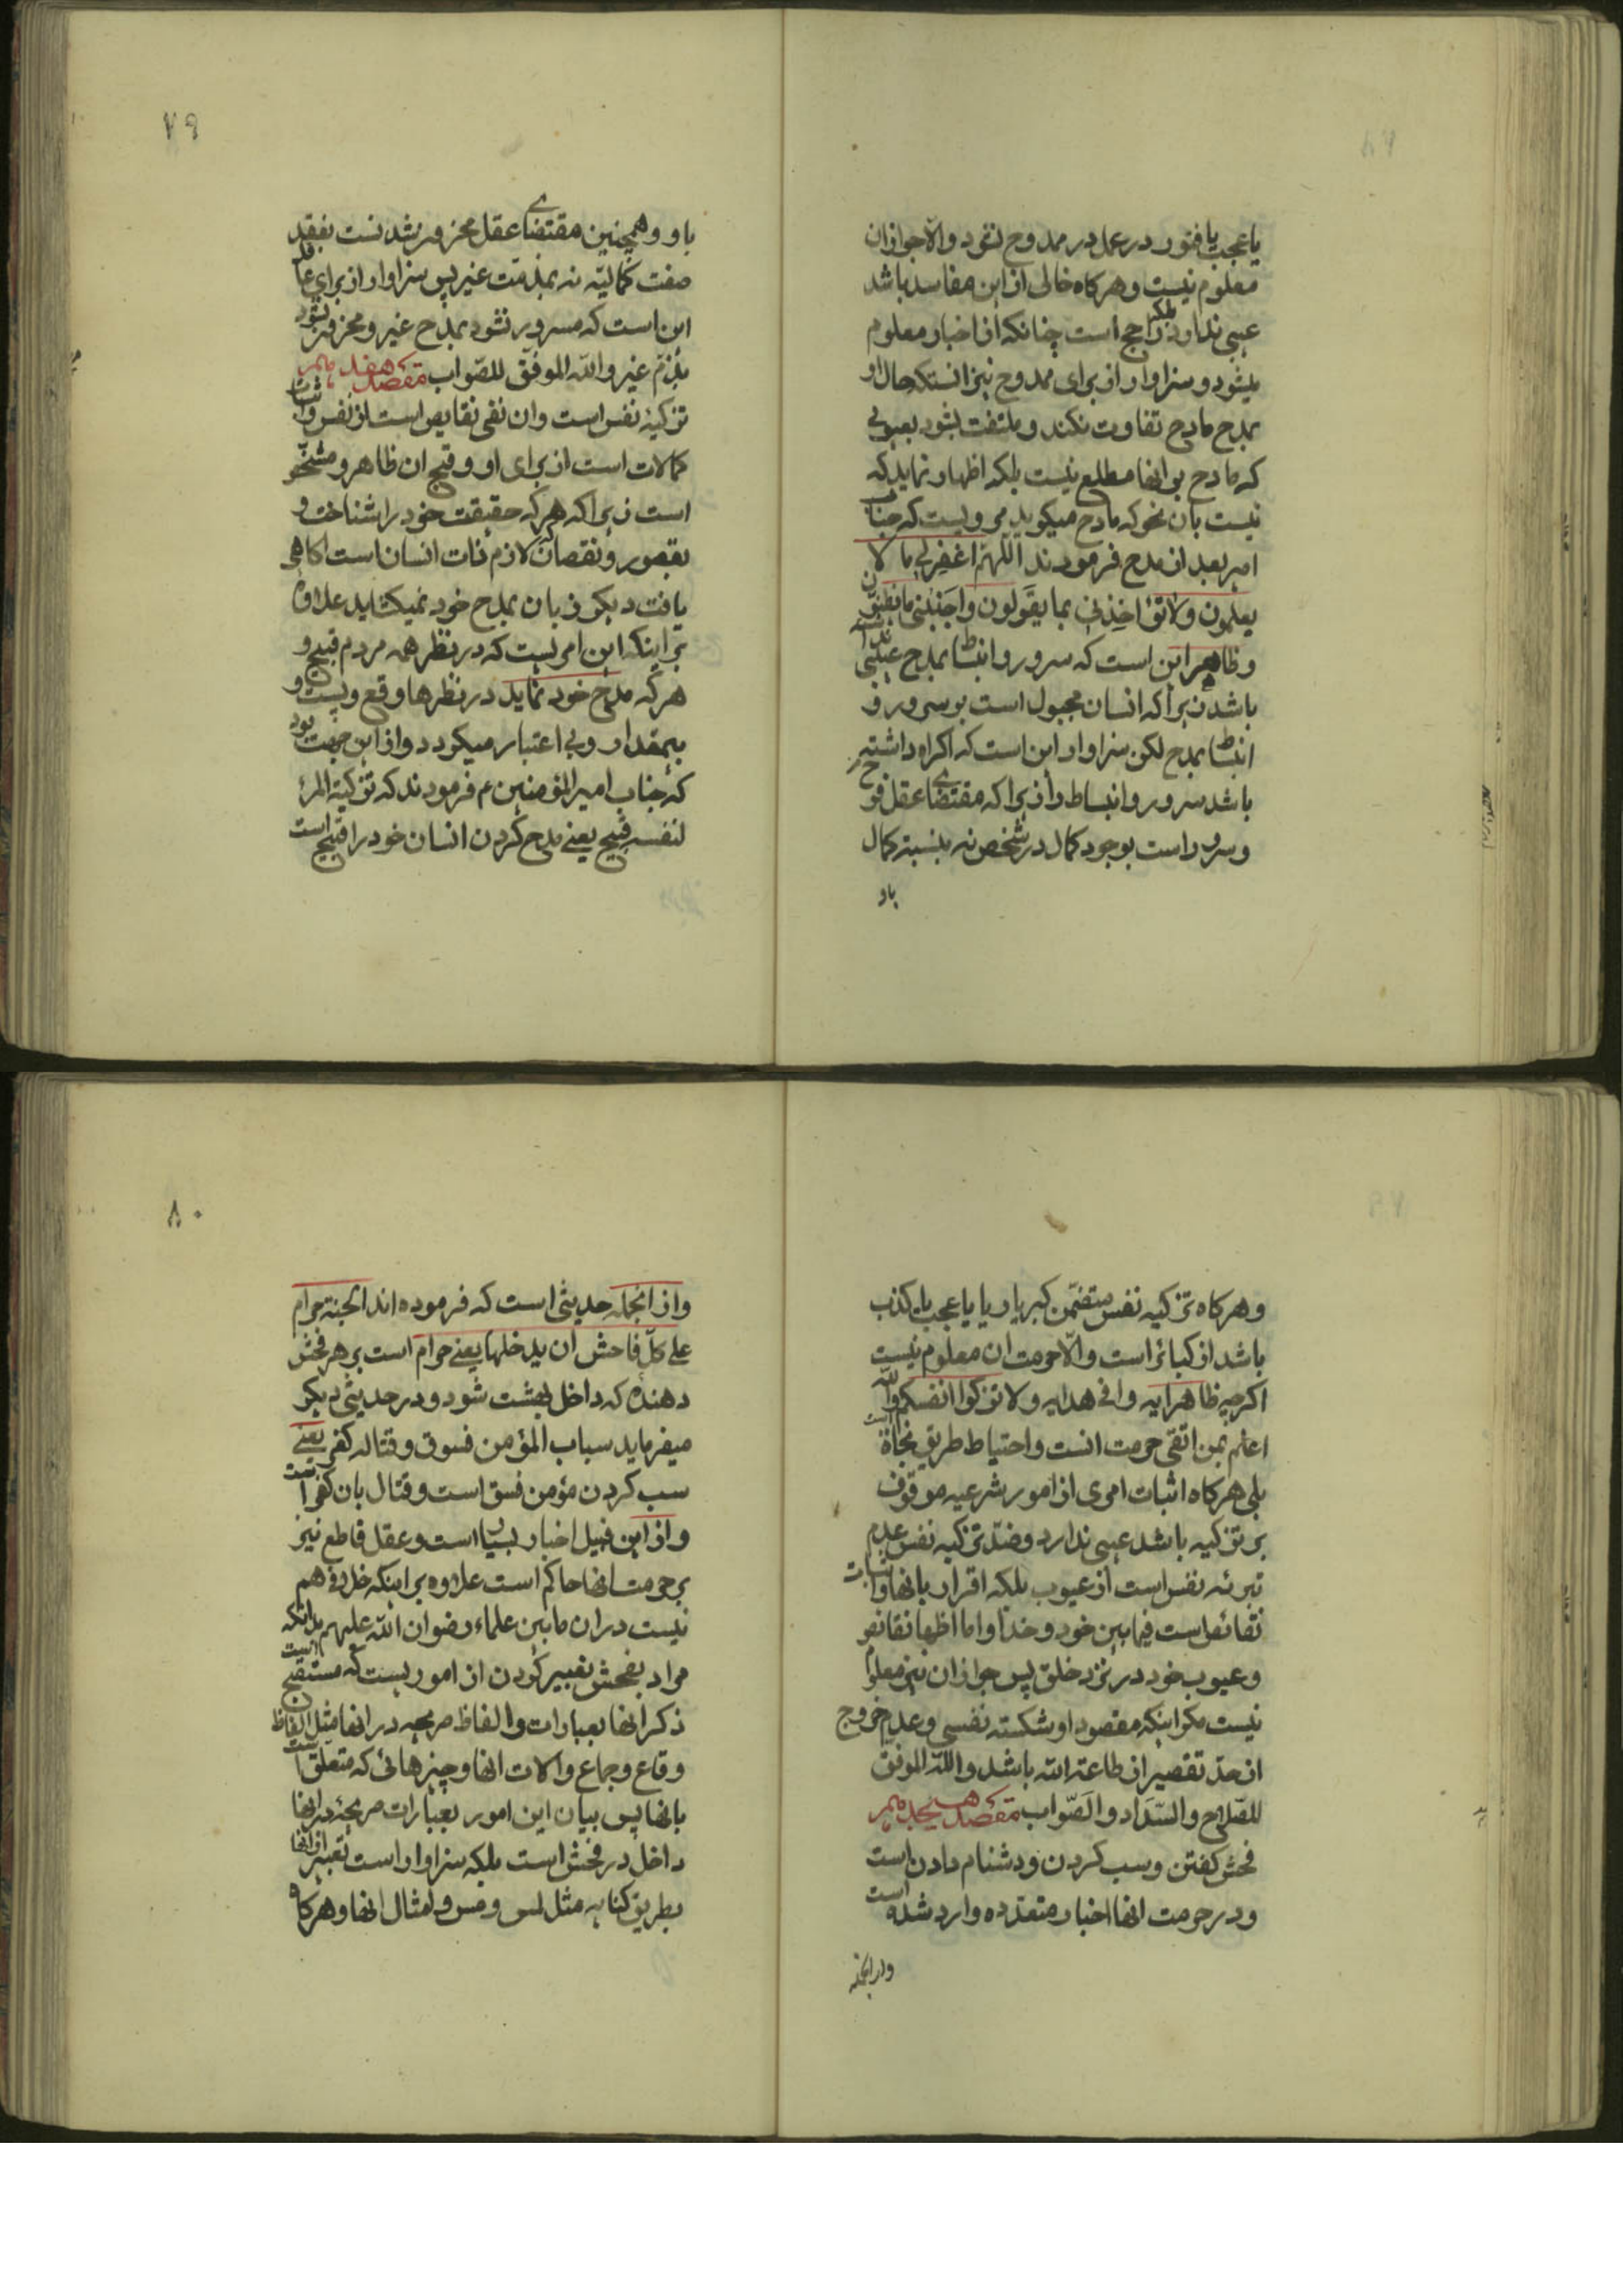 یا عجب یا فتور در عمل در ممدوح نشود والا جواز ان
معلوم نیست و هرکاه خالی از این مفاسد باشد
عیبی ندارد بلکه راجح است چنانکه از اخبار معلوم
میشود و سزاوار از برای ممدوح نیز انستکه حال او
بمدح مادح تفاوت نکند و ملتفت بشود بعیوبی
که مادح بر انها مطلع نیست بلکه اظهار نماید که
نیست بان نحو که مادح میکوید مرویست که جناب
امیر بعد از مدح فرمودند اللهم اغفر لی ما لا
یعلمون ولا تؤاخذنی بما یقولون واجنبنی ما یظنون
و ظاهر این است که سرور و انبساط بمدح عیبی نداشته
باشد زیرا که انسان مجبول است بر سرور و
انبساط بمدح لکن سزاوار این است که اکراه داشته
باشد سرور و انبساط را زیرا که مقتضای عقل فرح
و سرور است بوجود کمال در شخص نه بنسبة کمال
باو
۷۹
باو و همچنین مقتضای عقل محزون شدنست بفقد
صفت کمالیّه نه بمذمّت غیر پس سزاوار از برای عاقل
این است که مسرور نشود بمدح غیر و محزون نشود
بذمّ غیر والله الموفّق للصّواب مقصد هفدهم
تزکیۀ نفس است و ان نفی نقایص است از نفس و اثبات
کمالات است از برای او و قبح ان ظاهر و مشخّص
است زیرا که هر که حقیقت خود را شناخت و
بقصور و نقصان که لازم ذات انسان است اکاهی
یافت دیکر زبان بمدح خود نمیکشاید علاوه
بر اینکه این امریست که در نظر همه مردم قبیح و
هر که مدح خود نماید در نظرها وقع و پست و
بیمقدار و بی اعتبار میکردد و از این جهت بود
که جناب امیر المؤمنین ع فرمودند که تزکیة المرء
لنفسه قبیح یعنی مدح کردن انسان خود را قبیح است
و هرکاه تزکیه نفس متضمّن کبر یا ریا یا عجب یا کذب
باشد از کبائر است والّا حرمت ان معلوم نیست
اکرچه ظاهر ایه وافی هدایه ولا تزکوا انفسکم والله
اعلم بمن اتقی حرمت انست و احتیاط طریق نجاة است
بلی هرکاه اثبات امری از امور شرعیه موقوف
بر تزکیه باشد عیبی ندارد و ضدّ تزکیه نفس عدم
تبرئه نفس است از عیوب بلکه اقرار بانها و اثبات
نقائص است فیما بین خود و خدا و اما اظهار نقائص
و عیوب خود در نزد خلق پس جواز ان نیز معلوم
نیست مکر اینکه مقصود او شکسته نفسی و عدم خروج
از حدّ تقصیر از طاعة الله باشد والله الموفق
للصّلاح والسّداد والصّواب مقصد هیجدهم
فحش کفتن و سب کردن و دشنام دادن است
و در حرمت انها اخبار متعدّده وارد شده است
و از انجمله
۸۰
و از انجمله حدیثی است که فرموده اند الجنة حرام
علی کلّ فاحش ان یدخلها یعنی حرام است بر هر فحش
دهنده که داخل بهشت شود و در حدیثی دیکر
میفرماید سباب المؤمن فسوق و قتاله کفر یعنی
سب کردن مؤمن فسق است و قتال بان کفر است
و از این قبیل اخبار بسیار است و عقل قاطع نیز
بر حرمت انها حاکم است علاوه بر اینکه خلافی هم
نیست در ان مابین علماء رضوان الله علیهم بدانکه
مراد بفحش تعبیر کردن از اموریست که مستقبح است
ذکر انها بعبارات و الفاظ صریحه در انها مثل الفاظ
وقاع و جماع و الات انها و چیزهائی که متعلق است
بانها پس بیان این امور بعبارات صریحۀ در انها
داخل در فحش است بلکه سزاوار است تعبیر از انها
بطریق کنایه مثل لمس و مس و امثال انها و هرکاه